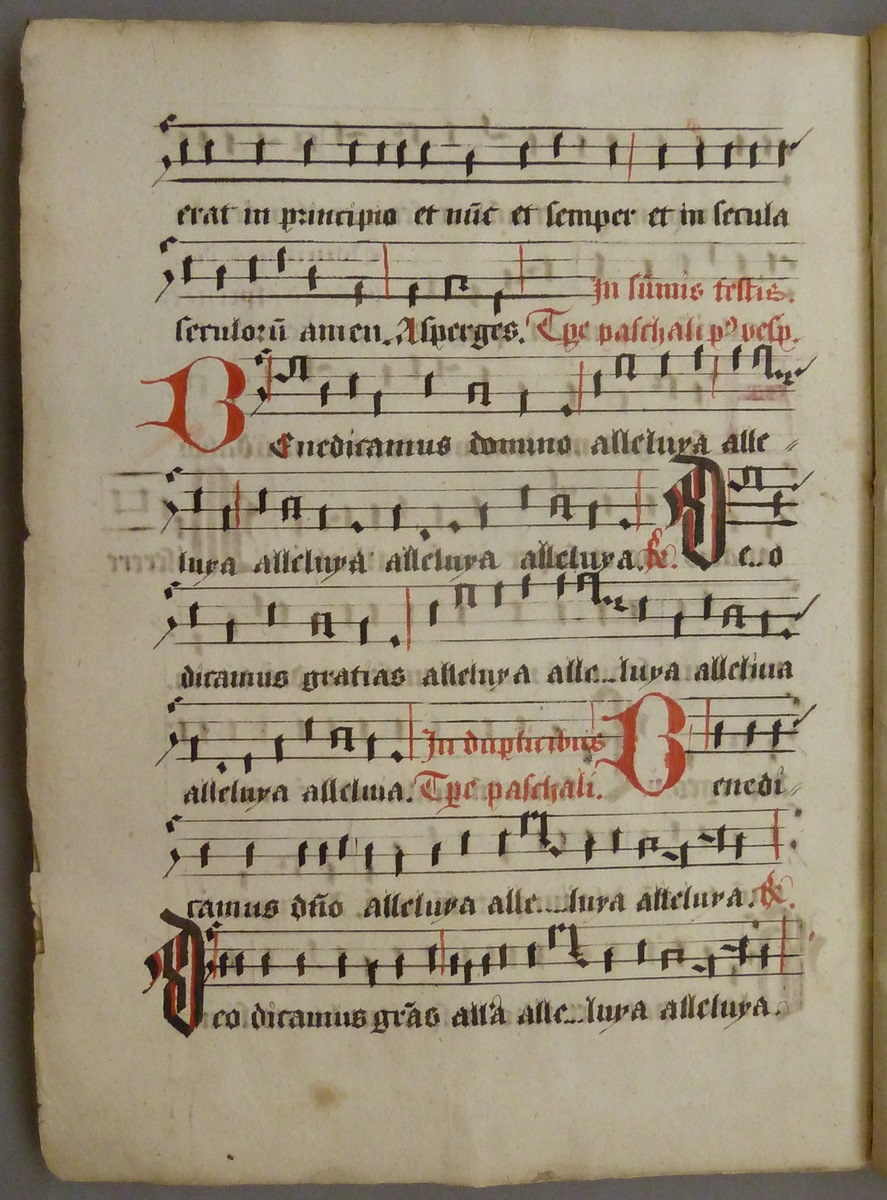 erat in principio et nūc et semper et in secula
In sūmis festis.
seculorū amen. Asperges. Tpe paschali pº vesp.
Benedicamus domino alleluya alle
luya alleluya alleluya alleluya. R. De..o
dicamus gratias alleluya alle..luya alleluia
In duplicibus
alleluya alleluia. Tpe paschali. Benedi
camus dño alleluya alle....luya alleluya. R.
Deo dicamus grās allā alle...luya alleluya.